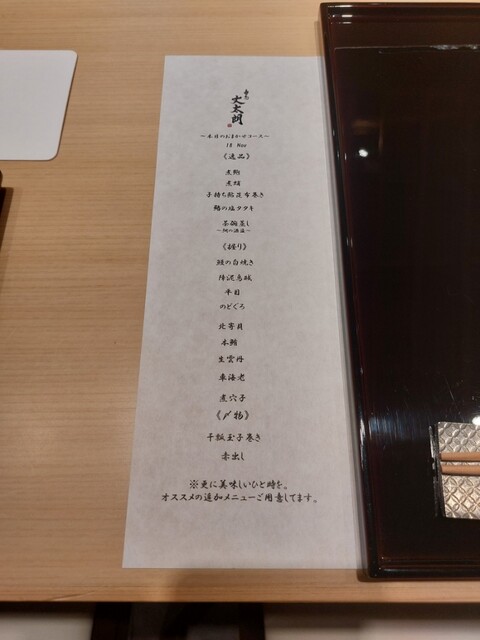 文太朗
～本日のおまかせコース～
18 Nov
《逸品》
煮鮑
煮蛸
子持ち鮎昆布巻き
鰆の塩タタキ
茶碗蒸し
《握り》
鰻の白焼き
障泥烏賊
平目
のどぐろ
北寄貝
本鮪
生雲丹
車海老
煮穴子
《〆物》
干瓢玉子巻き
赤出し
※更に美味しいひと時を。
オススメの追加メニューご用意してます。